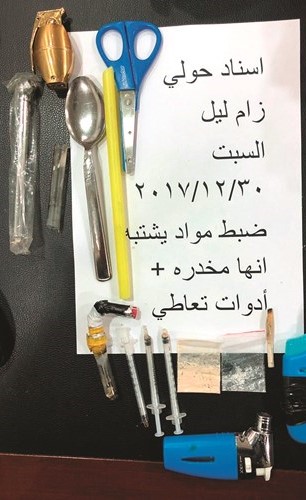 اسناد حولي
زام ليل
السبت
٢٠١٧/١٢/٣٠
ضبط مواد يشتبه
انها مخدره +
أدوات تعاطي